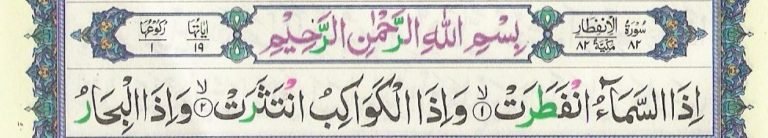 سُوْرَةُ الْاِنْفِطَارِ مَكِّيَّةٌ ٨٢ ٨٢
بِسْمِ اللّٰهِ الرَّحْمٰنِ الرَّحِيْمِ
اٰيَاتُهَا ١٩ رُكُوْعُهَا ١
اِذَا السَّمَآءُ انْفَطَرَتْ ۙ﴿١﴾ وَاِذَا الْكَوَاكِبُ انْتَثَرَتْ ۙ﴿٢﴾ وَاِذَا الْبِحَارُ